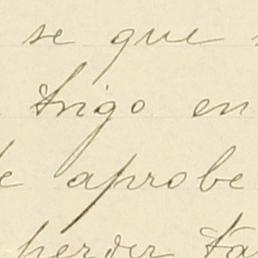 se que
trigo en
aprobe
perder ta